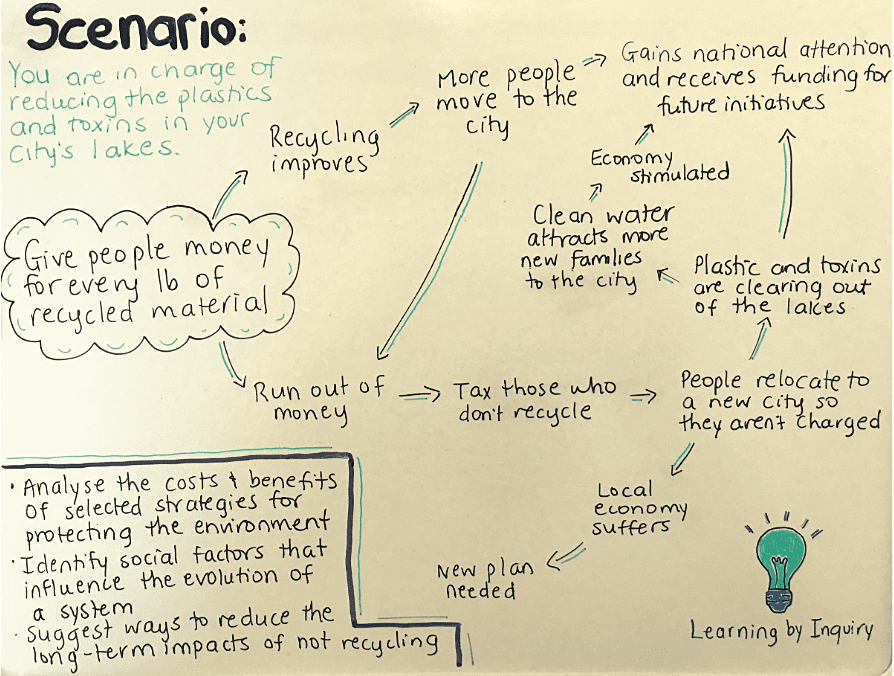 Scenario:
You are in charge of
reducing the plastics
and toxins in your
city's lakes.
Give people money
for every lb of
recycled material
Recycling
improves
More people
move to the
city
Gains national attention
and receives funding for
future initiatives
Economy
stimulated
Clean water
attracts more
new families
to the city
Plastic and toxins
are clearing out
of the lakes
Run out of
money
Tax those who
don't recycle
People relocate to
a new city so
they aren't charged
Local
economy
suffers
New plan
needed
• Analyse the costs & benefits
of selected strategies for
protecting the environment
• Identify social factors that
influence the evolution of
a system
• Suggest ways to reduce the
long-term impacts of not recycling
Learning by Inquiry